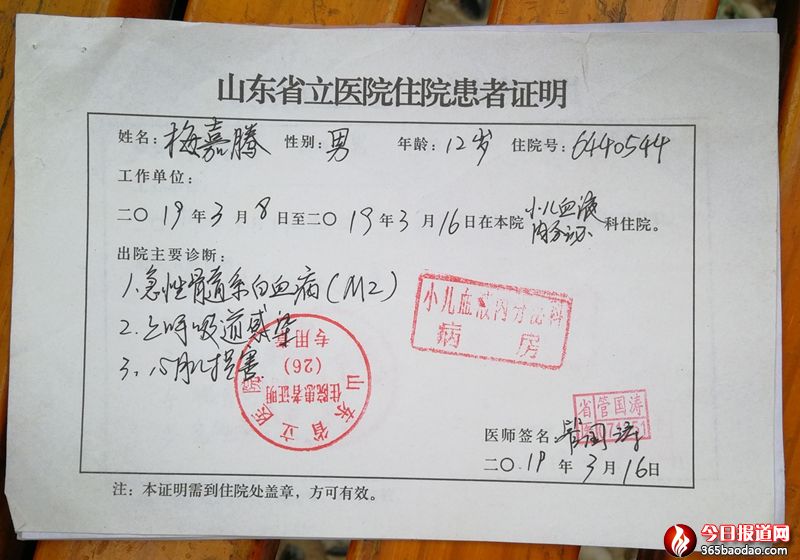 山东省立医院住院患者证明
姓名: 梅嘉腾 性别: 男 年龄: 12岁 住院号: 6440544
工作单位:
二〇19年3月8日至二〇19年3月16日在本院小儿血液内分泌科住院。
出院主要诊断:
1.急性骨髓系白血病(M2)
2.上呼吸道感染
3、心肌损害
小儿血液内分泌科
病房
山东省立医院
住院患者证明
(26)
专用章
省管国涛
医师签名 管国涛
二〇19年3月16日
注:本证明需到住院处盖章,方可有效。
今日报道网
365baodao.com